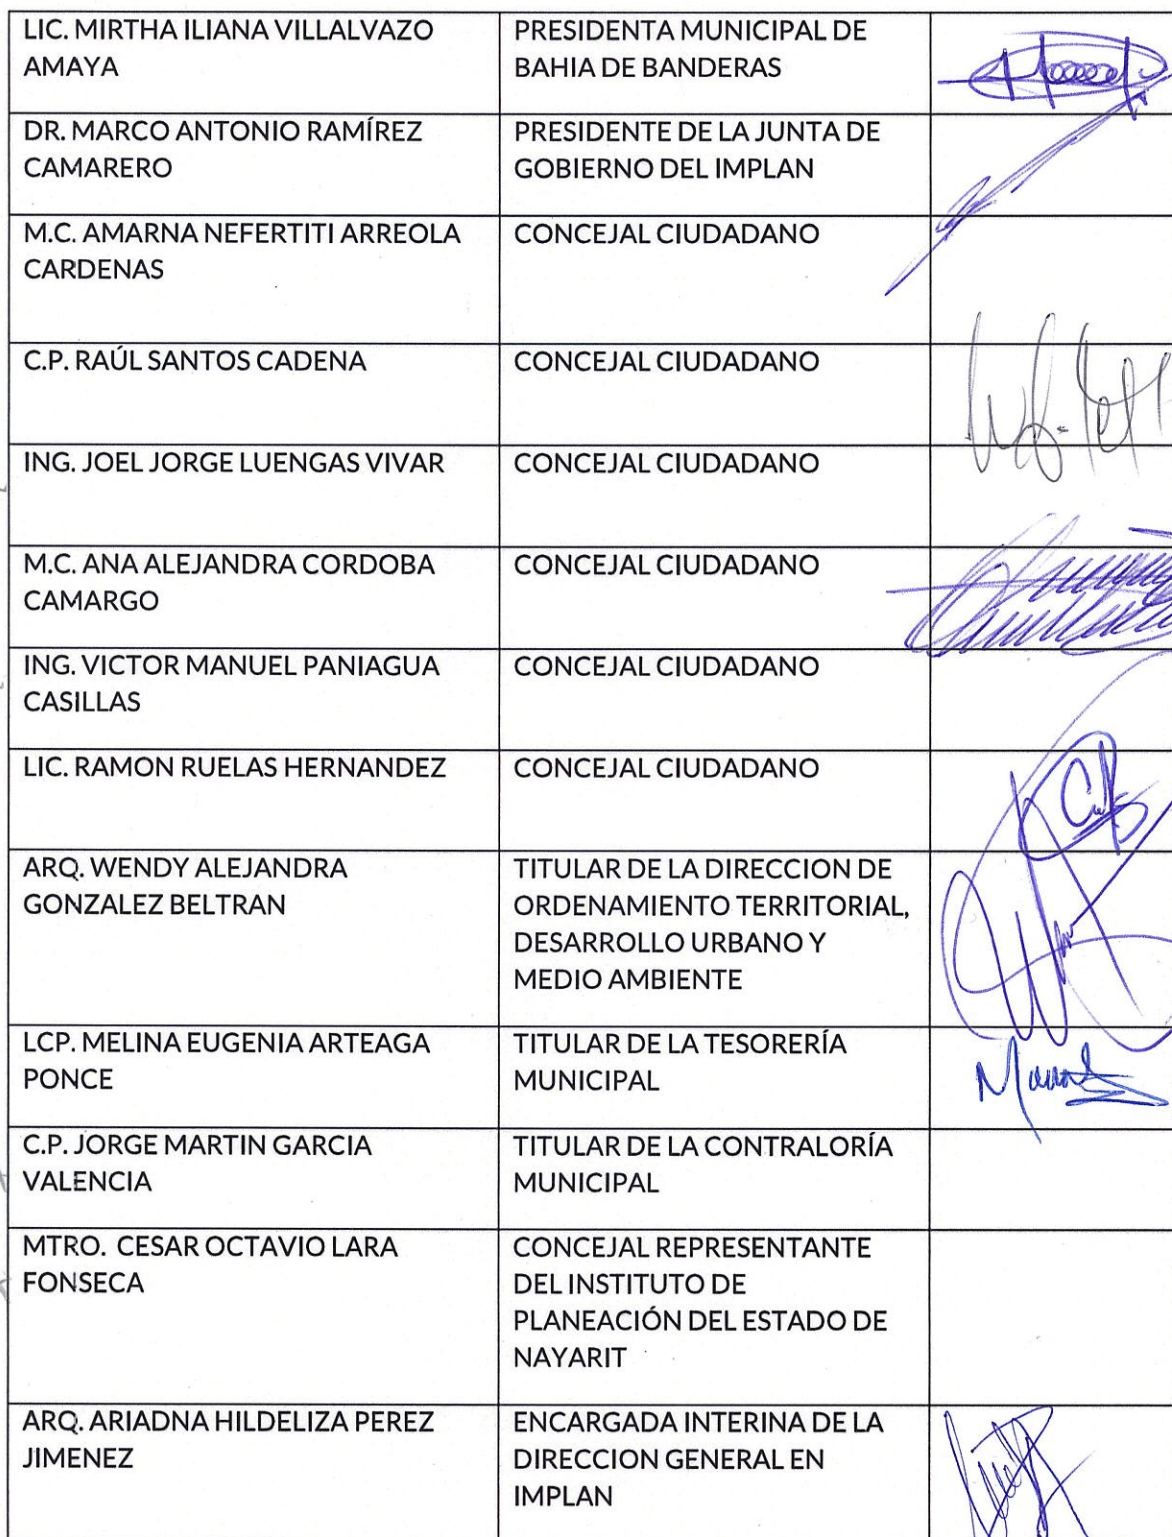 LIC. MIRTHA ILIANA VILLALVAZO
AMAYA
PRESIDENTA MUNICIPAL DE
BAHIA DE BANDERAS
DR. MARCO ANTONIO RAMÍREZ
CAMARERO
PRESIDENTE DE LA JUNTA DE
GOBIERNO DEL IMPLAN
M.C. AMARNA NEFERTITI ARREOLA
CARDENAS
CONCEJAL CIUDADANO
C.P. RAÚL SANTOS CADENA
CONCEJAL CIUDADANO
ING. JOEL JORGE LUENGAS VIVAR
CONCEJAL CIUDADANO
M.C. ANA ALEJANDRA CORDOBA
CAMARGO
CONCEJAL CIUDADANO
ING. VICTOR MANUEL PANIAGUA
CASILLAS
CONCEJAL CIUDADANO
LIC. RAMON RUELAS HERNANDEZ
CONCEJAL CIUDADANO
ARQ. WENDY ALEJANDRA
GONZALEZ BELTRAN
TITULAR DE LA DIRECCION DE
ORDENAMIENTO TERRITORIAL,
DESARROLLO URBANO Y
MEDIO AMBIENTE
LCP. MELINA EUGENIA ARTEAGA
PONCE
TITULAR DE LA TESORERÍA
MUNICIPAL
C.P. JORGE MARTIN GARCIA
VALENCIA
TITULAR DE LA CONTRALORÍA
MUNICIPAL
MTRO. CESAR OCTAVIO LARA
FONSECA
CONCEJAL REPRESENTANTE
DEL INSTITUTO DE
PLANEACIÓN DEL ESTADO DE
NAYARIT
ARQ. ARIADNA HILDELIZA PEREZ
JIMENEZ
ENCARGADA INTERINA DE LA
DIRECCION GENERAL EN
IMPLAN